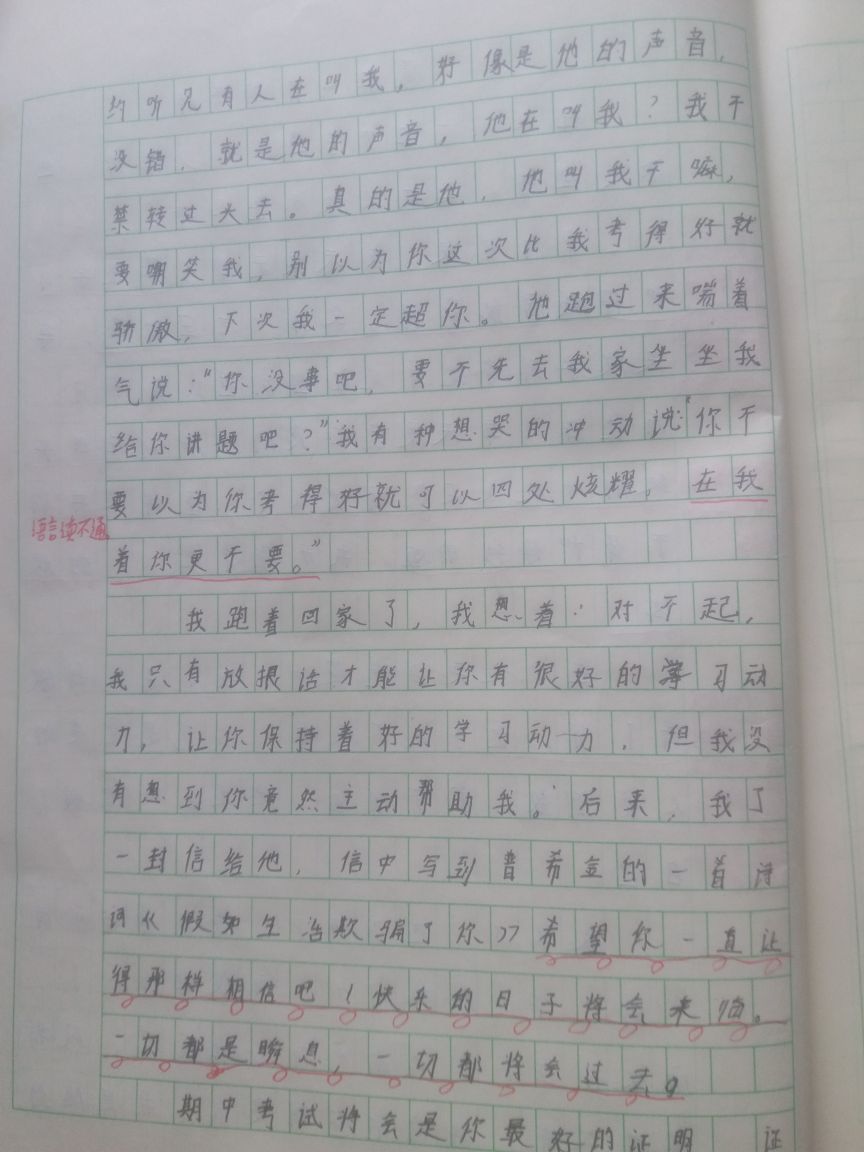 约听见有人在叫我，好像是他的声音，
没错，就是他的声音，他在叫我？我不
禁转过头去。真的是他，他叫我干嘛，
要嘲笑我，别以为你这次比我考得好就
骄傲，下次我一定超你。他跑过来喘着
气说：“你没事吧，要不先去我家坐坐我
给你讲题吧？”我有种想哭的冲动说：“你不
要以为你考得好就可以四处炫耀，在我
语言读不通
着你更不要。”
我跑着回家了，我想着：对不起，
我只有放狠话才能让你有很好的学习动
力，让你保持着好的学习动力，但我没
有想到你竟然主动帮助我。后来，我了
一封信给他，信中写到普希金的一首诗
词《假如生活欺骗了你》希望你一直让
得那样相信吧！快乐的日子将会来临。
一切都是瞬息，一切都将会过去。
期中考试将会是你最好的证明 证